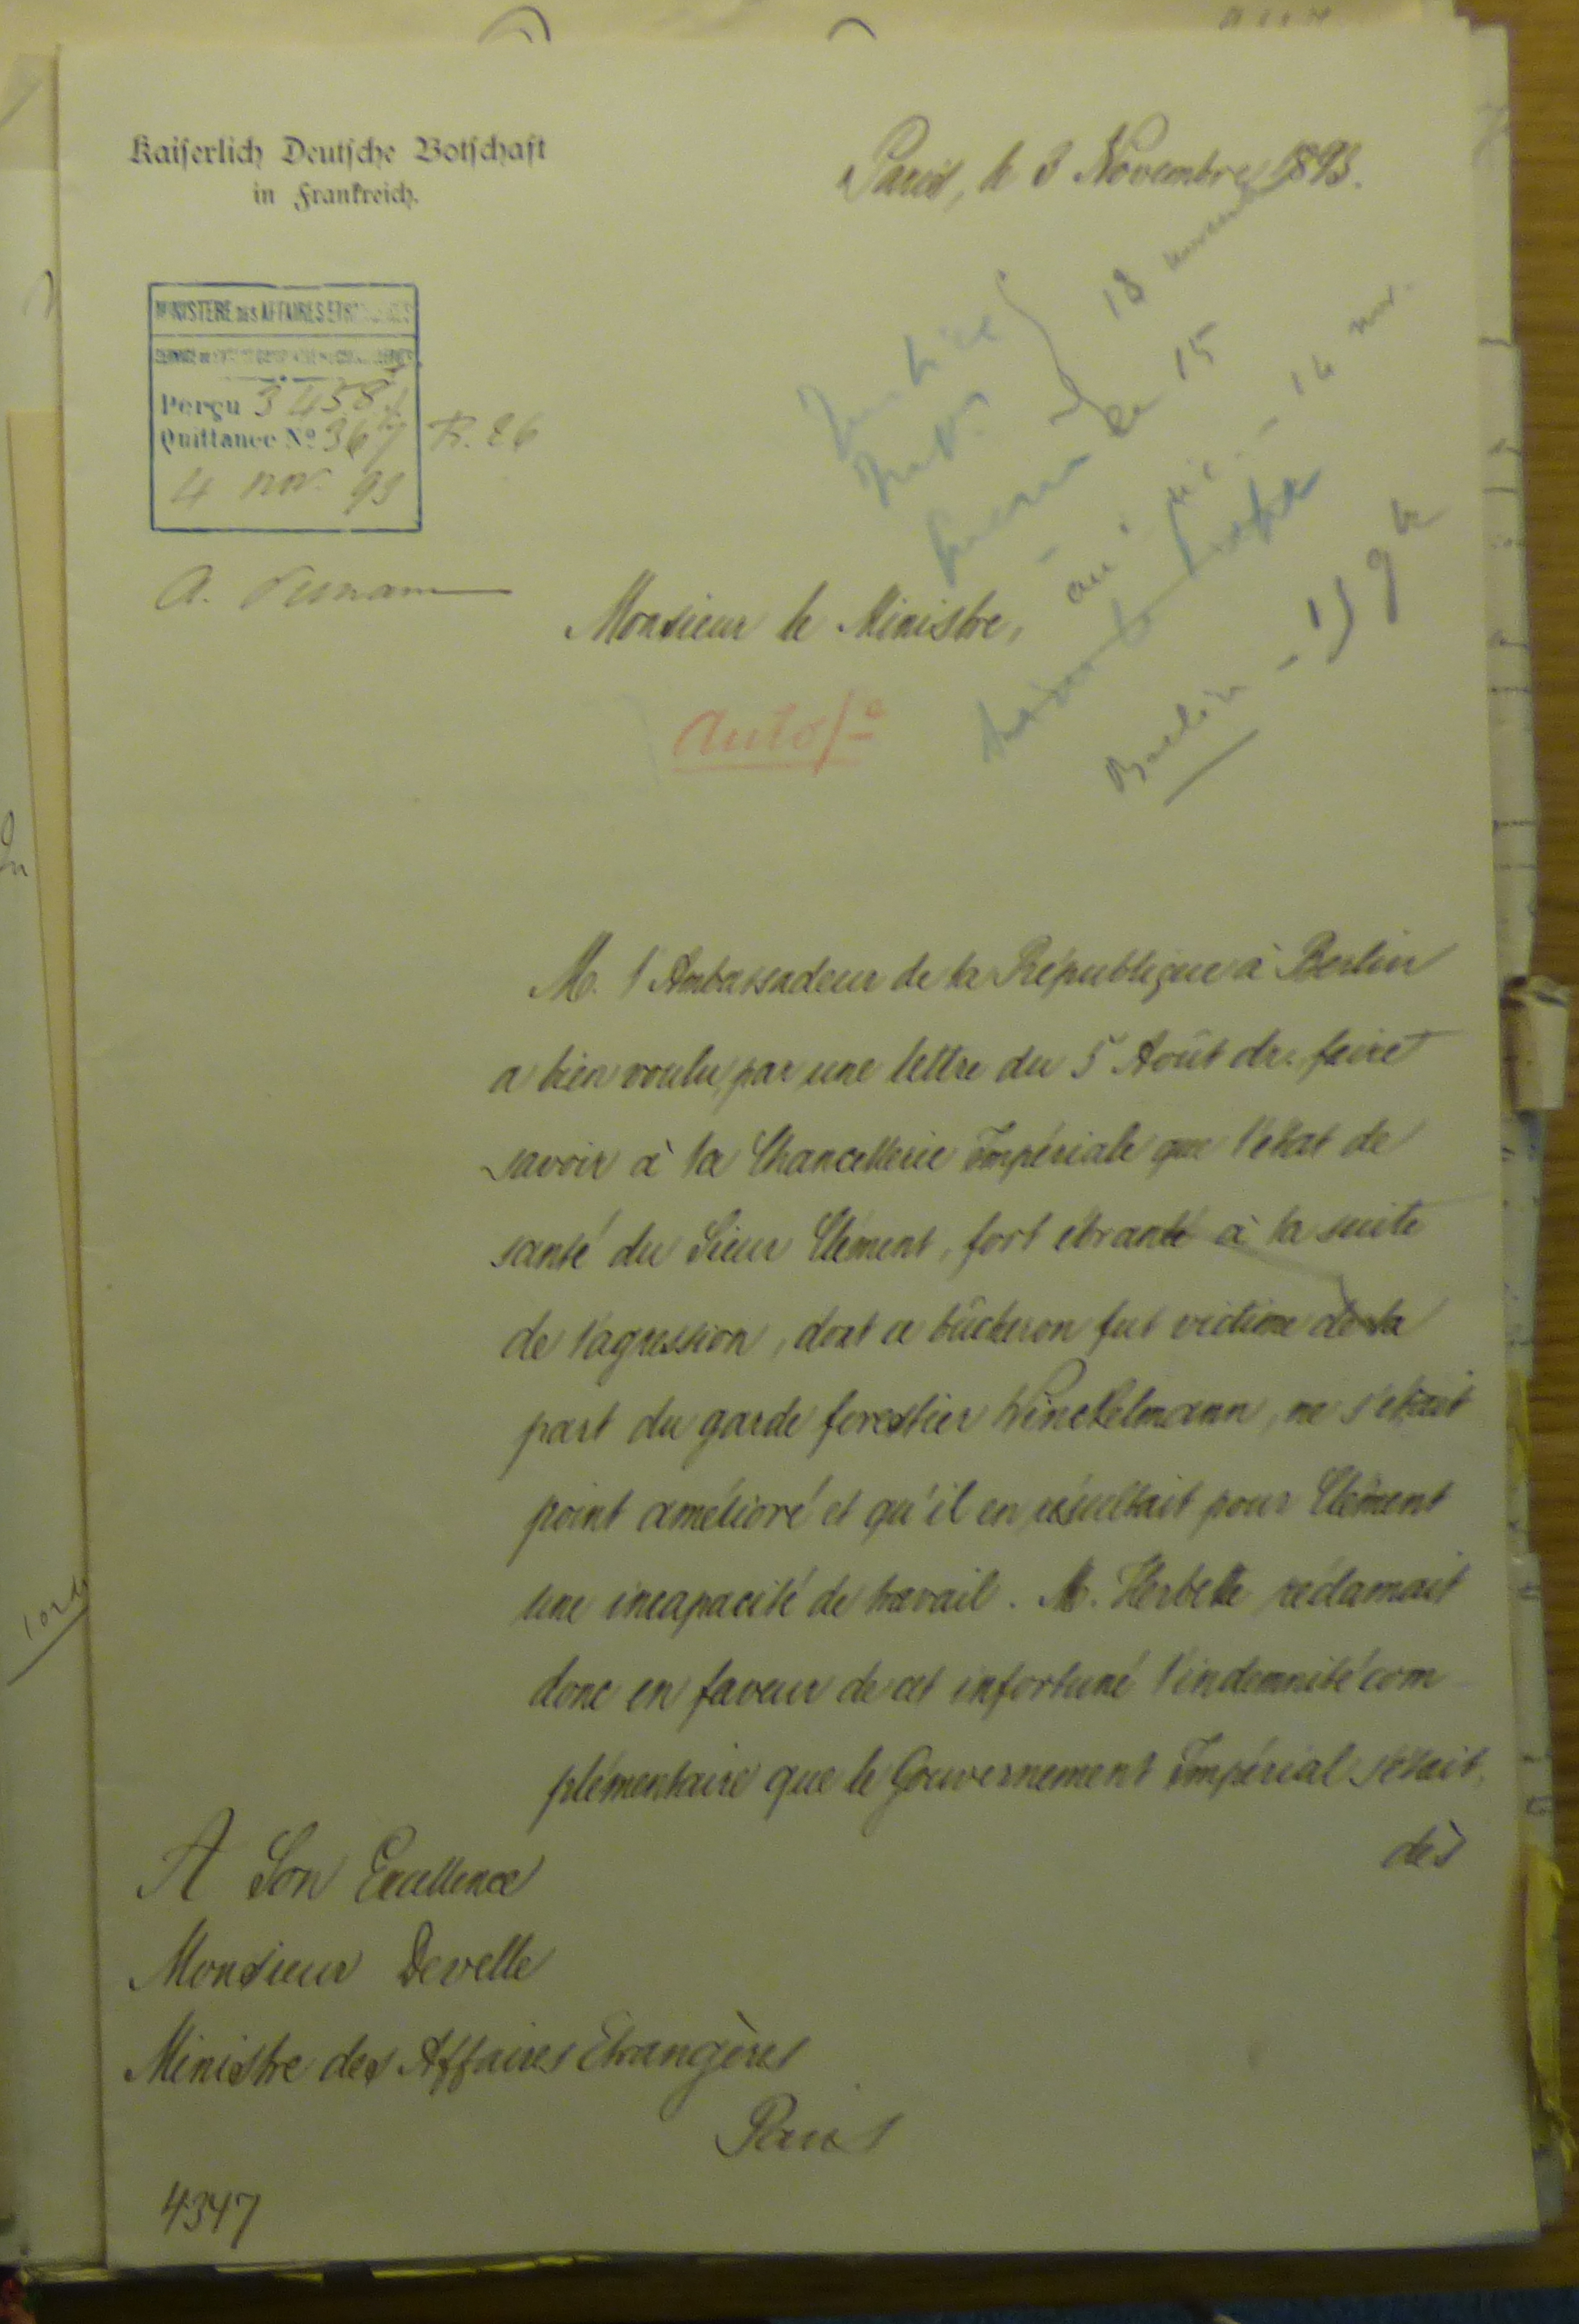 Kaiserlich Deutsche Botschaft
in Frankreich.
Paris, le 3 Novembre 1893.
MINISTERE DES AFFAIRES ETRANGERES
Perçu 3 458
Quittance Nº 367 R. 26
4 nov. 93
18 novembre
le 15
16 nov.
Berlin - 15 9bre
Monsieur le Ministre,
M. l'Ambassadeur de la République à Berlin
a bien voulu, par une lettre du 5 Août dr. faire
savoir à la Chancellerie Impériale que l'état de
santé du Sieur Clément, fort ébranlé à la suite
de l'agression, dont ce bûcheron fut victime de la
part du garde forestier Winckelmann, ne s'était
point amélioré et qu'il en résultait pour Clément
une incapacité de travail. M. Herbette réclamait
donc en faveur de cet infortuné l'indemnité com
plémentaire que le Gouvernement Impérial s'était
dès
A Son Excellence
Monsieur Develle
Ministre des Affaires Etrangères
Paris
4347